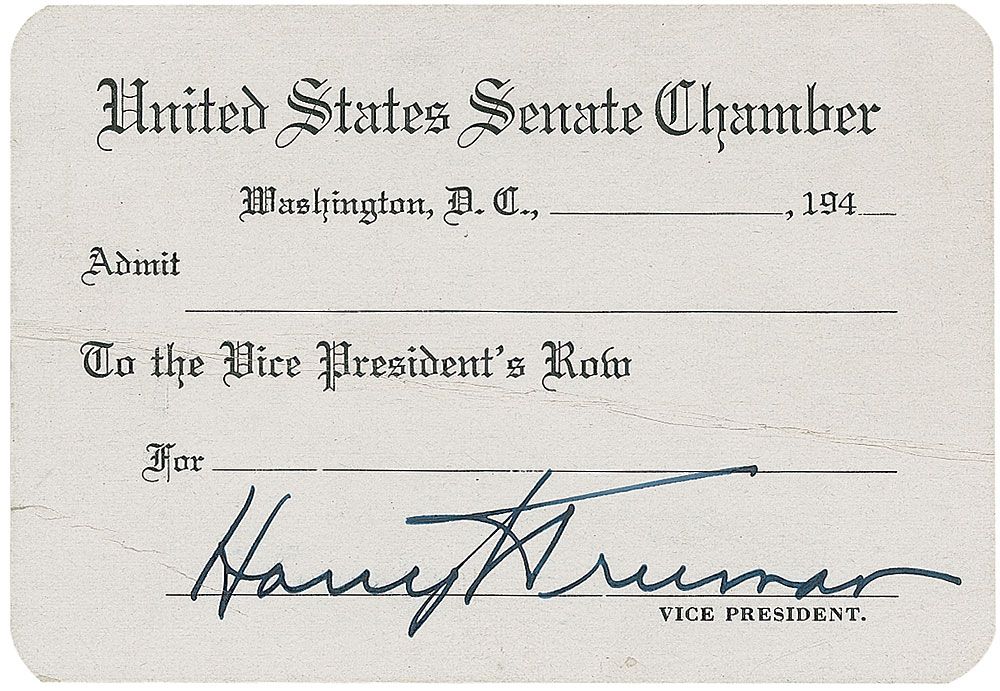 United States Senate Chamber
Washington, D. C., ______________, 194__
Admit ______________
To the Vice President's Row
For ______________
Harry S Truman
VICE PRESIDENT.